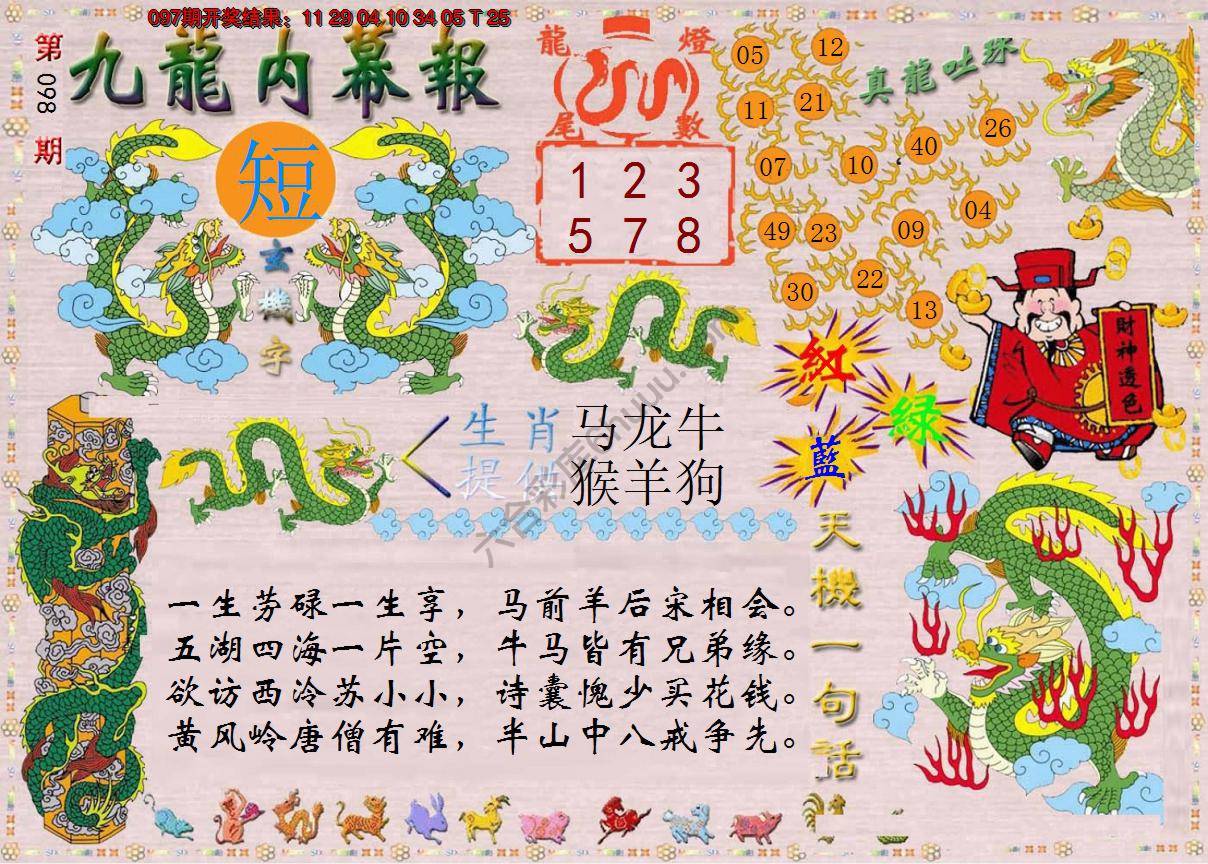 097期开奖结果：11 29 04 10 34 05 T 25
第098期
九龍内幕報
短
玄機字
龍燈
尾數
1 2 3
5 7 8
真龍吐珠
05 12
11 21
07 10 40 26
49 23 09 04
30 22 13
紅
綠
藍
財神透色
生肖 马龙牛
提供 猴羊狗
六合彩库
天機一句話
一生劳碌一生享，马前羊后宋相会。
五湖四海一片空，牛马皆有兄弟缘。
欲访西冷苏小小，诗囊愧少买花钱。
黄风岭唐僧有难，半山中八戒争先。